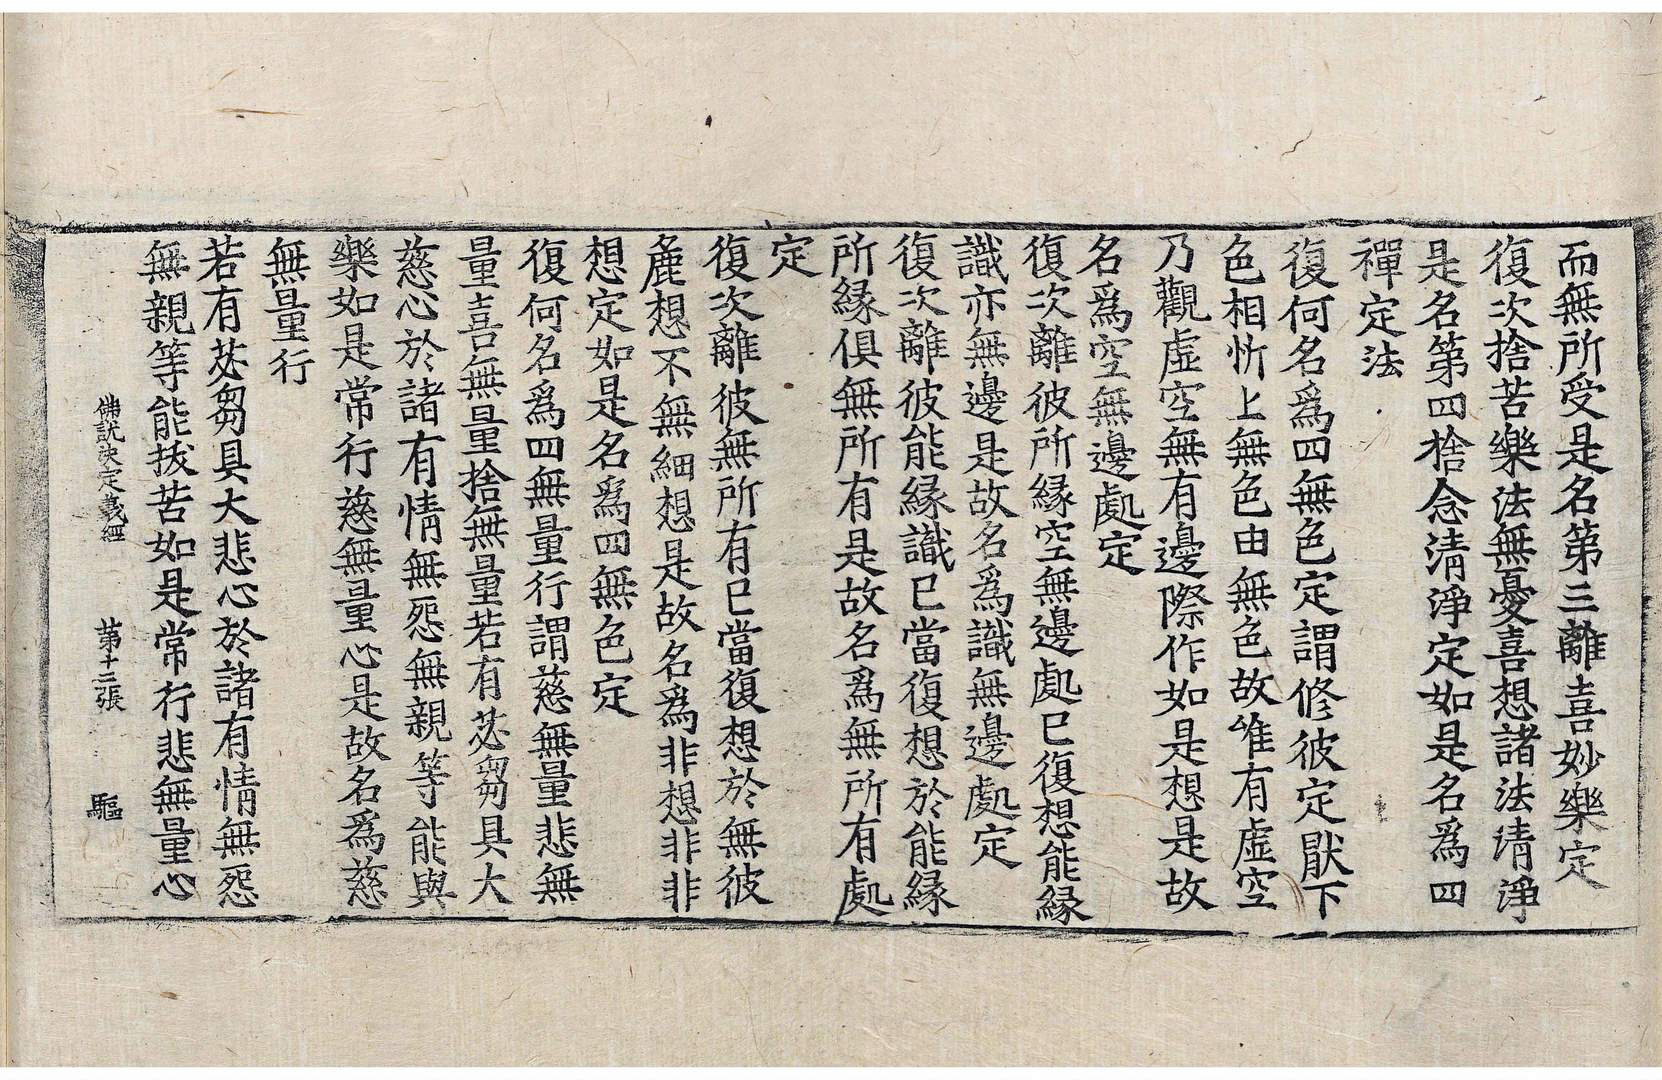 而無所受是名第三離喜妙樂定
復次捨苦樂法無憂喜想諸法清淨
是名第四捨念清淨定如是名爲四
禪定法
復何名爲四無色定謂修彼定猒下
色相忻上無色由無色故唯有虛空
乃觀虛空無有邊際作如是想是故
名爲空無邊處定
復次離彼所緣空無邊處已復想能緣
識亦無邊是故名爲識無邊處定
復次離彼能緣識已當復想於能緣
所緣俱無所有是故名爲無所有處
定
復次離彼無所有已當復想於無彼
麁想不無細想是故名爲非想非非
想定如是名爲四無色定
復何名爲四無量行謂慈無量悲無
量喜無量捨無量若有苾芻具大
慈心於諸有情無怨無親等能與
樂如是常行慈無量心是故名爲慈
無量行
若有苾芻具大悲心於諸有情無怨
無親等能拔苦如是常行悲無量心
佛說決定義經 第十三張 驅